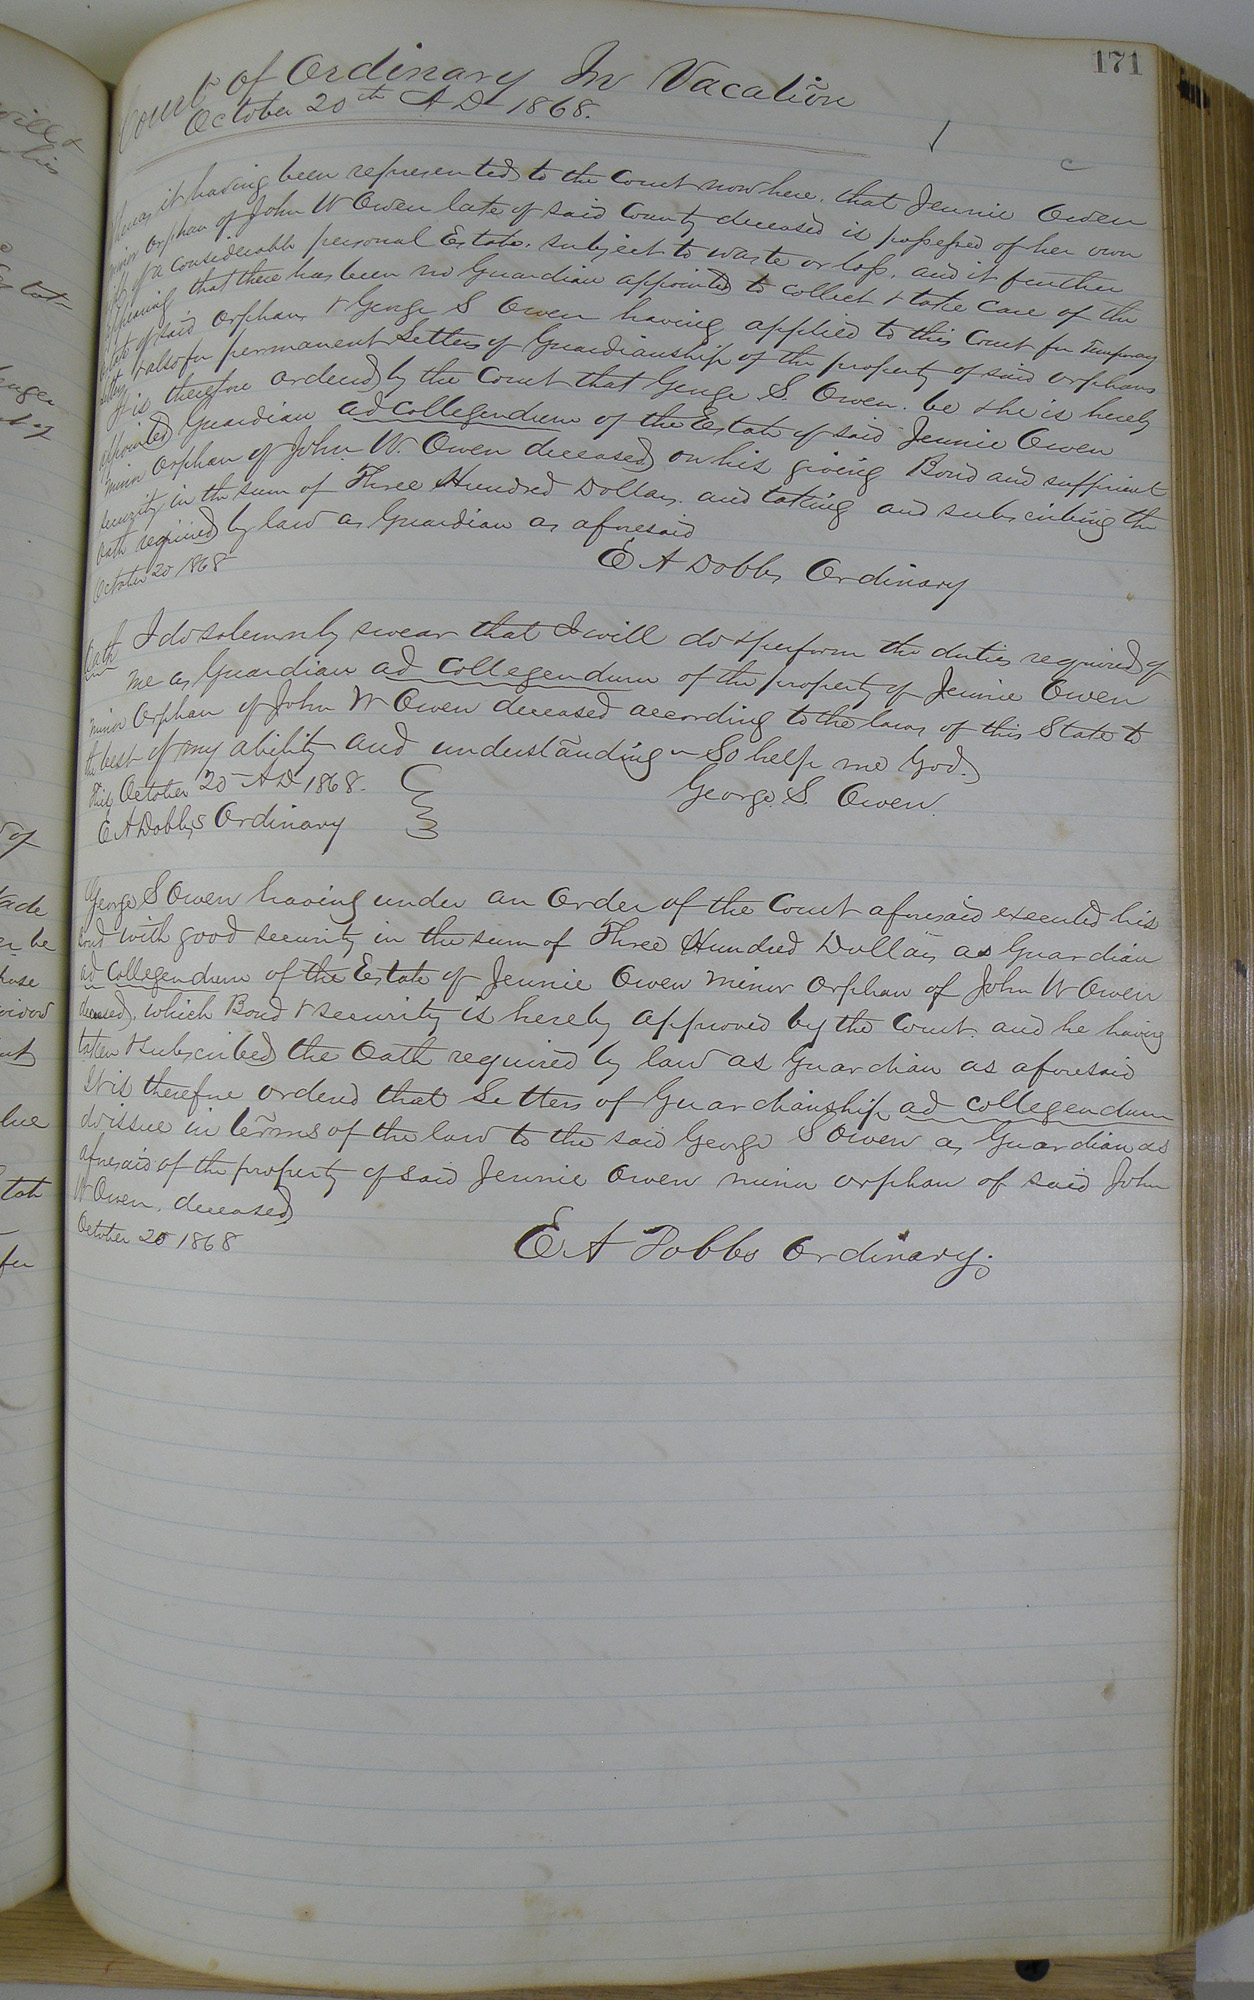 171
Court of Ordinary In Vacation
October 20th A D 1868.
Whereas it having been represented to the Court now here, that Jennie Owen
minor Orphan of John W Owen late of said County deceased is possessed of her own
right of a considerable personal Estate, subject to waste or loss, and it further
appearing that there has been no Guardian appointed to collect & take care of the
estate of said Orphan & George S Owen having applied to this Court for Temporary
Letters & also for permanent Letters of Guardianship of the property of said orphans
It is therefore ordered by the Court that George S. Owen. be & he is hereby
appointed Guardian ad collegendum of the Estate of said Jennie Owen
minor Orphan of John W. Owen deceased on his giving Bond and sufficient
security in the sum of Three Hundred Dollars, and taking and subscribing the
Oath required by law as Guardian as aforesaid
October 20 1868
E A Dobbs Ordinary
Oath I do solemnly swear that I will do & perform the duties required of
me as Guardian ad collegendum of the property of Jennie Owen
minor Orphan of John W Owen deceased according to the laws of this State to
the best of my ability and understanding - So help me God.
This October 20 A D 1868.
George. S. Owen
E A Dobbs Ordinary
George S Owen having under an Order of the Court aforesaid executed his
Bond with good security in the sum of Three Hundred Dollars as Guardian
ad collegendum of the Estate of Jennie Owen minor Orphan of John W Owen
deceased, which Bond & security is hereby approved by the Court and he having
taken & subscribed the Oath required by law as Guardian as aforesaid
It is therefore ordered that Letters of Guardianship ad collegendum
do issue in terms of the law to the said George S Owen as Guardian as
aforesaid of the property of said Jennie Owen minor orphan of said John
W Owen, deceased
October 20 1868
E A Dobbs Ordinary.